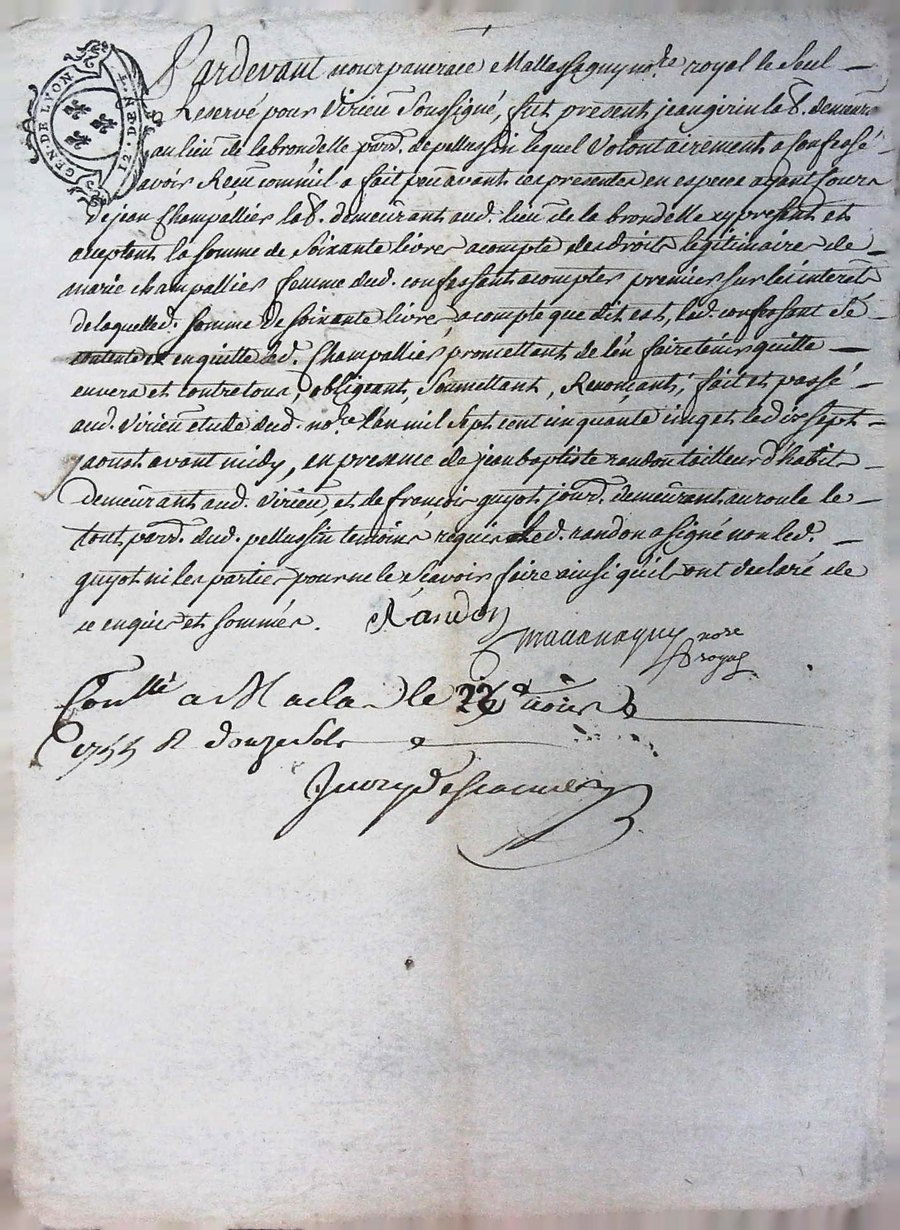 GEN·DE LYON
12·DEN
Pardevant nous panerace Mallassaguy no.re royal le Seul
Reservé pour Virieu Soussigné, fut present jean girin la B. demeura
au lieu de la brondelle parr. de pellussin lequel Volontairement a Confessé
avoir Reçu comm'il a fait peu avant ces presentes en especes ayant Cours
de jean Champallier la B. demeurant aud. lieu de la brondelle yy present et
aceptant la somme de Soixante livres acompte des droits legitimaire de
marie champallier femme dud. confessant acomptes premier sur les interets
de laquelled. Somme de Soixante livres acompte que dit est, led. confessant s'est
contenté et en quitte led. Champallier, promettant de l'en faire tenir quitte
envers et contre tous, obligeant, Soumettant, Renonçant, fait et passé
aud. Virieu etude dud. no.re l'an mil Sept cent cinquante cinq et le dix sept
aoust avant midy, en presence de jean baptiste randon tailleur d'habits
demeurant aud. Virieu, et de françois guyot jour. demeurant au roule le
tout parr. dud. pellussin temoins requis led. randon a signé non led.
guyot ni les parties pour ne le Scavoir faire ainsi qu'ils ont declaré de
ce enquis et sommés. Randon
nore
royal
Conllé a Maclas le 22e aoust
1755 R douze Sols